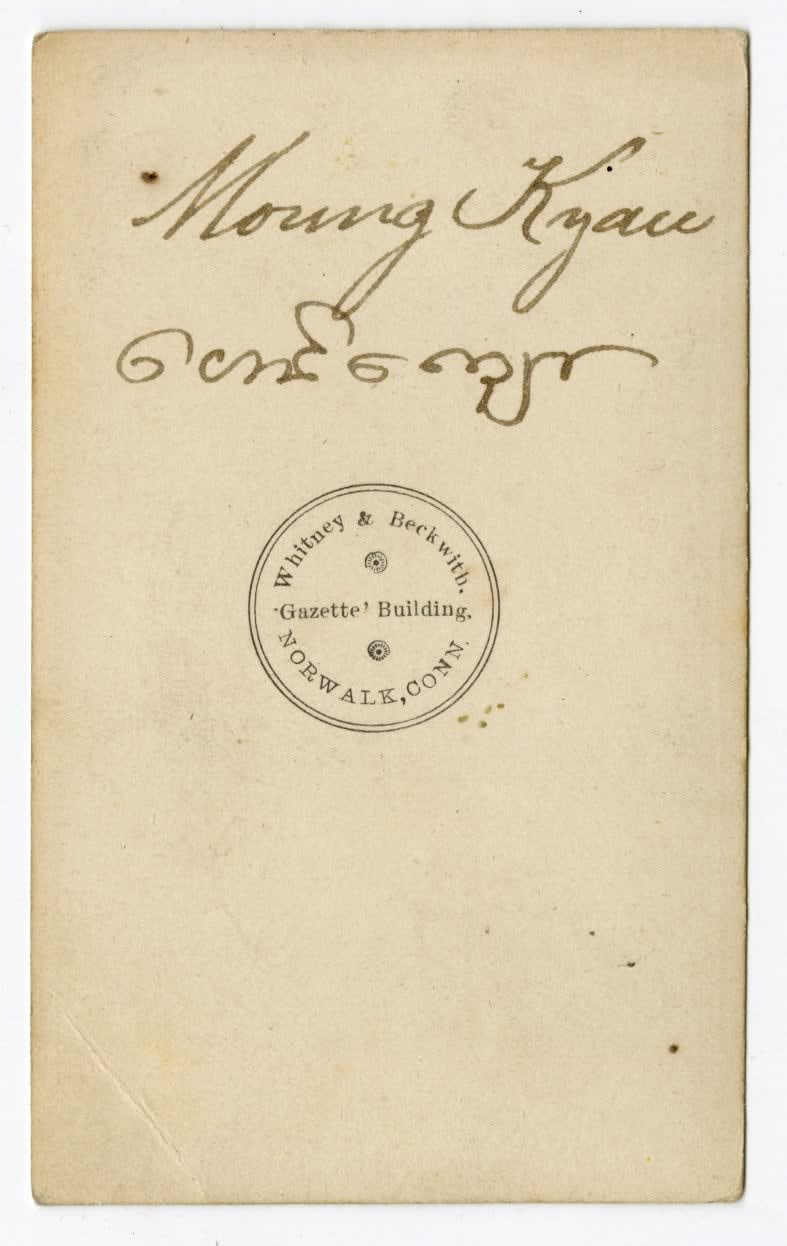 Moung Kyau
Whitney & Beckwith.
'Gazette' Building,
NORWALK, CONN.